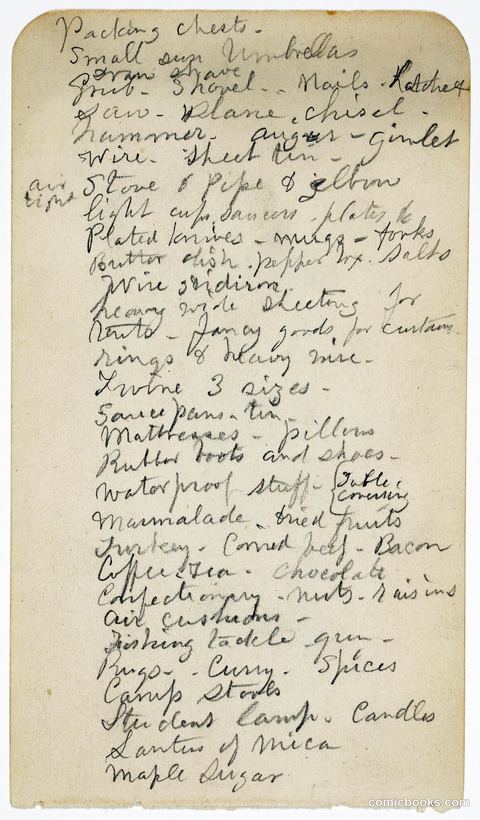 Packing chests.
Small sun Umbrellas
Draw shave
Grub - Shovel - Nails - Hatchet
Saw - Plane, chisel -
hammer - auger - gimlet
Wire - Sheet tin -
air tight
Stove & Pipe & elbow
light cups, saucers, plates &c
Plated knives - mugs - forks
Butter dish, pepper box, salts
Wire gridiron,
heavy wide sheeting for
tents - fancy goods for curtains
rings & heavy wire -
Twine 3 sizes -
Sauce pans - tin -
Mattresses - pillows
Rubber boots and shoes -
Waterproof stuff - {Table covering
Marmalade - dried fruits
Turkey - Corned beef - Bacon
Coffee. Tea - Chocolate
Confectionary - nuts - raisins
Air cushions -
Fishing tackle gun -
Rugs - Curry - Spices
Camp stools
Student lamp - Candles
of Mica
Maple Sugar
comicbooks.com